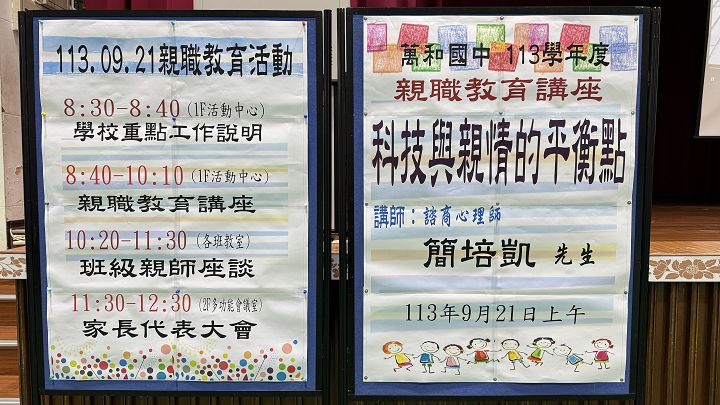 113.09.21親職教育活動
8:30-8:40(1F活動中心)
學校重點工作說明
8:40-10:10(1F活動中心)
親職教育講座
10:20-11:30(各班教室)
班級親師座談
11:30-12:30(2F多功能會議室)
家長代表大會
萬和國中 113學年度
親職教育講座
科技與親情的平衡點
講師：諮商心理師
簡培凱 先生
113年9月21日上午